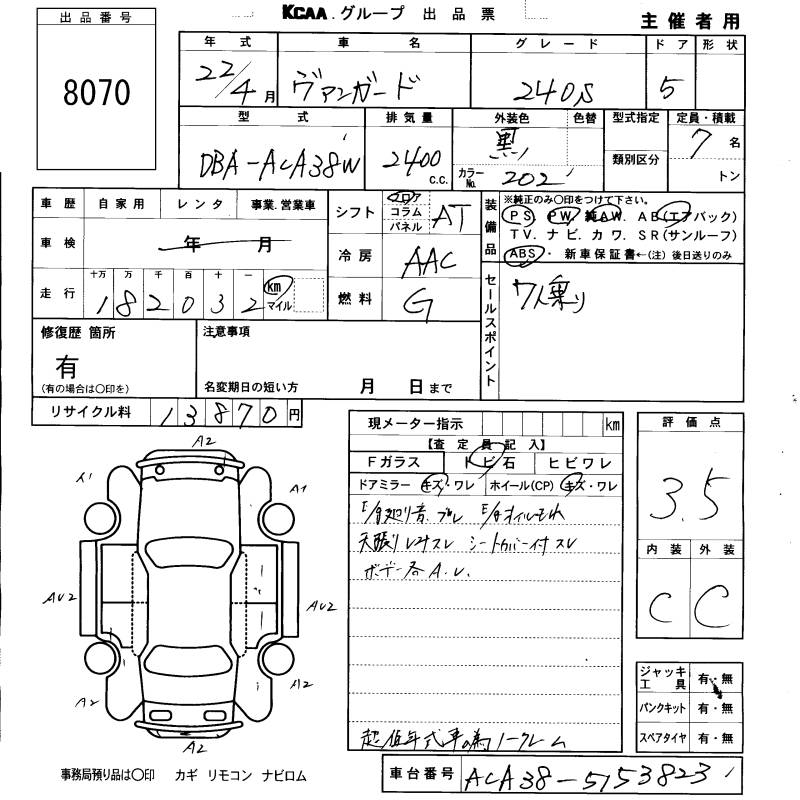 KCAA.グループ 出品票
主催者用
出品番号
8070
年式 車名 グレード ドア 形状
22/4月 ヴァンガード 240S 5
型式 排気量 外装色 色替 型式指定 定員・積載
DBA-ACA38W 2400 c.c. 黒 類別区分 7名
カラーNo. 202 トン
車歴 自家用 レンタ 事業.営業車
車検 年 月
走行 十万 万 千 百 十 一
182032 km マイル
シフト フロア コラム パネル AT
冷房 AAC
燃料 G
装備品 ※純正のみ〇印をつけて下さい。
PS PW 純AW. AB(エアバック)
TV. ナビ. カワ. SR(サンルーフ)
ABS・新車保証書←(注)後日送りのみ
セールスポイント
7人乗り
修復歴 箇所
有
(有の場合は〇印を)
注意事項
名変期日の短い方 月 日まで
リサイクル料 13870円
現メーター指示 km
【査定員記入】
Fガラス トビ石 ヒビワレ
ドアミラー キズ・ワレ ホイール(CP) キズ・ワレ
E/g廻り音、ブレ E/gオイルモレ
天張りシミスレ シートカバー付スレ
ボデー各A.U.
超低年式車の為ノークレーム
評価点
3.5
内装 外装
C C
ジャッキ工具 有・無
パンクキット 有・無
スペアタイヤ 有・無
A2
A1
A1
AU2
AU2
A2
A2
A2
事務局預り品は〇印 カギ リモコン ナビロム
車台番号 ACA38-5153823